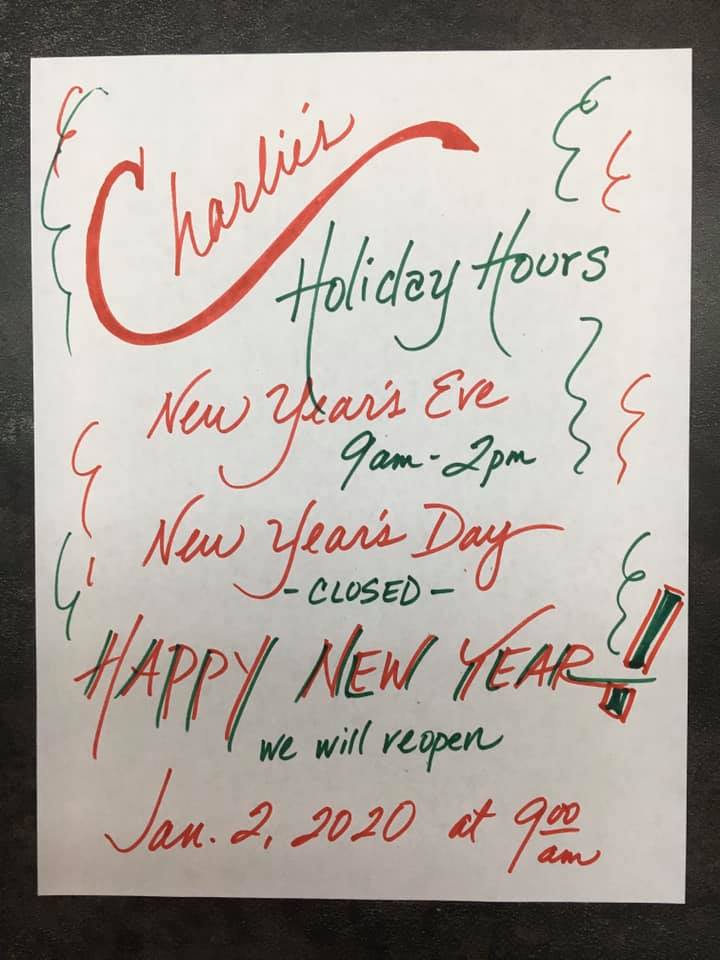 Charlie's
Holiday Hours
New Year's Eve
9am - 2pm
New Year's Day
- CLOSED -
HAPPY NEW YEAR!
we will reopen
Jan. 2, 2020 at 9 00 am